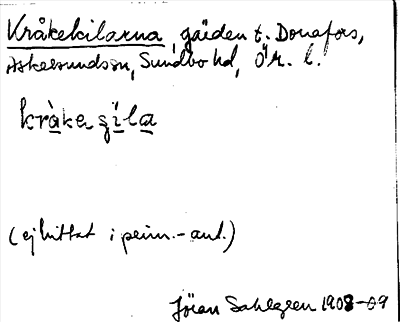 Kråkekilarna, gärden t. Donafors,
Askersundssn, Sundbo hd, Ör. l.
kråke ʒila
(ej hittat i prim.-ant.)
Jöran Sahlgren 1908-09